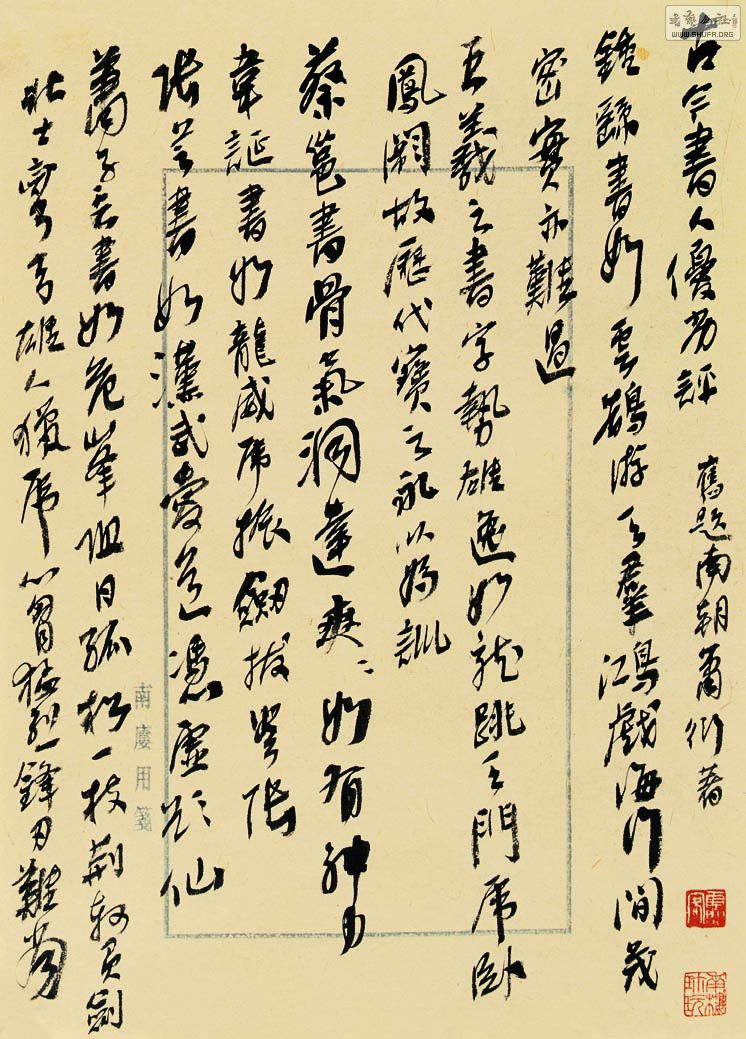 古今書人優劣評 舊題南朝蕭衍著
鍾繇書如雲鵠游天羣鴻戲海行間茂
密實亦難過
王羲之書字勢雄逸如龍跳天門虎臥
鳳闕故歷代寶之永以為訓
蔡邕書骨氣洞達爽〻如有神力
韋誕書如龍威虎振劔拔弩張
張芝書如漢武愛道憑虛欲仙
蕭子雲書如危峯阻日孤松一枝荊軻負劍
壯士彎弓雄人獵虎心胷猛烈鋒刃難當
南廔用箋
WWW.SHUFA.ORG